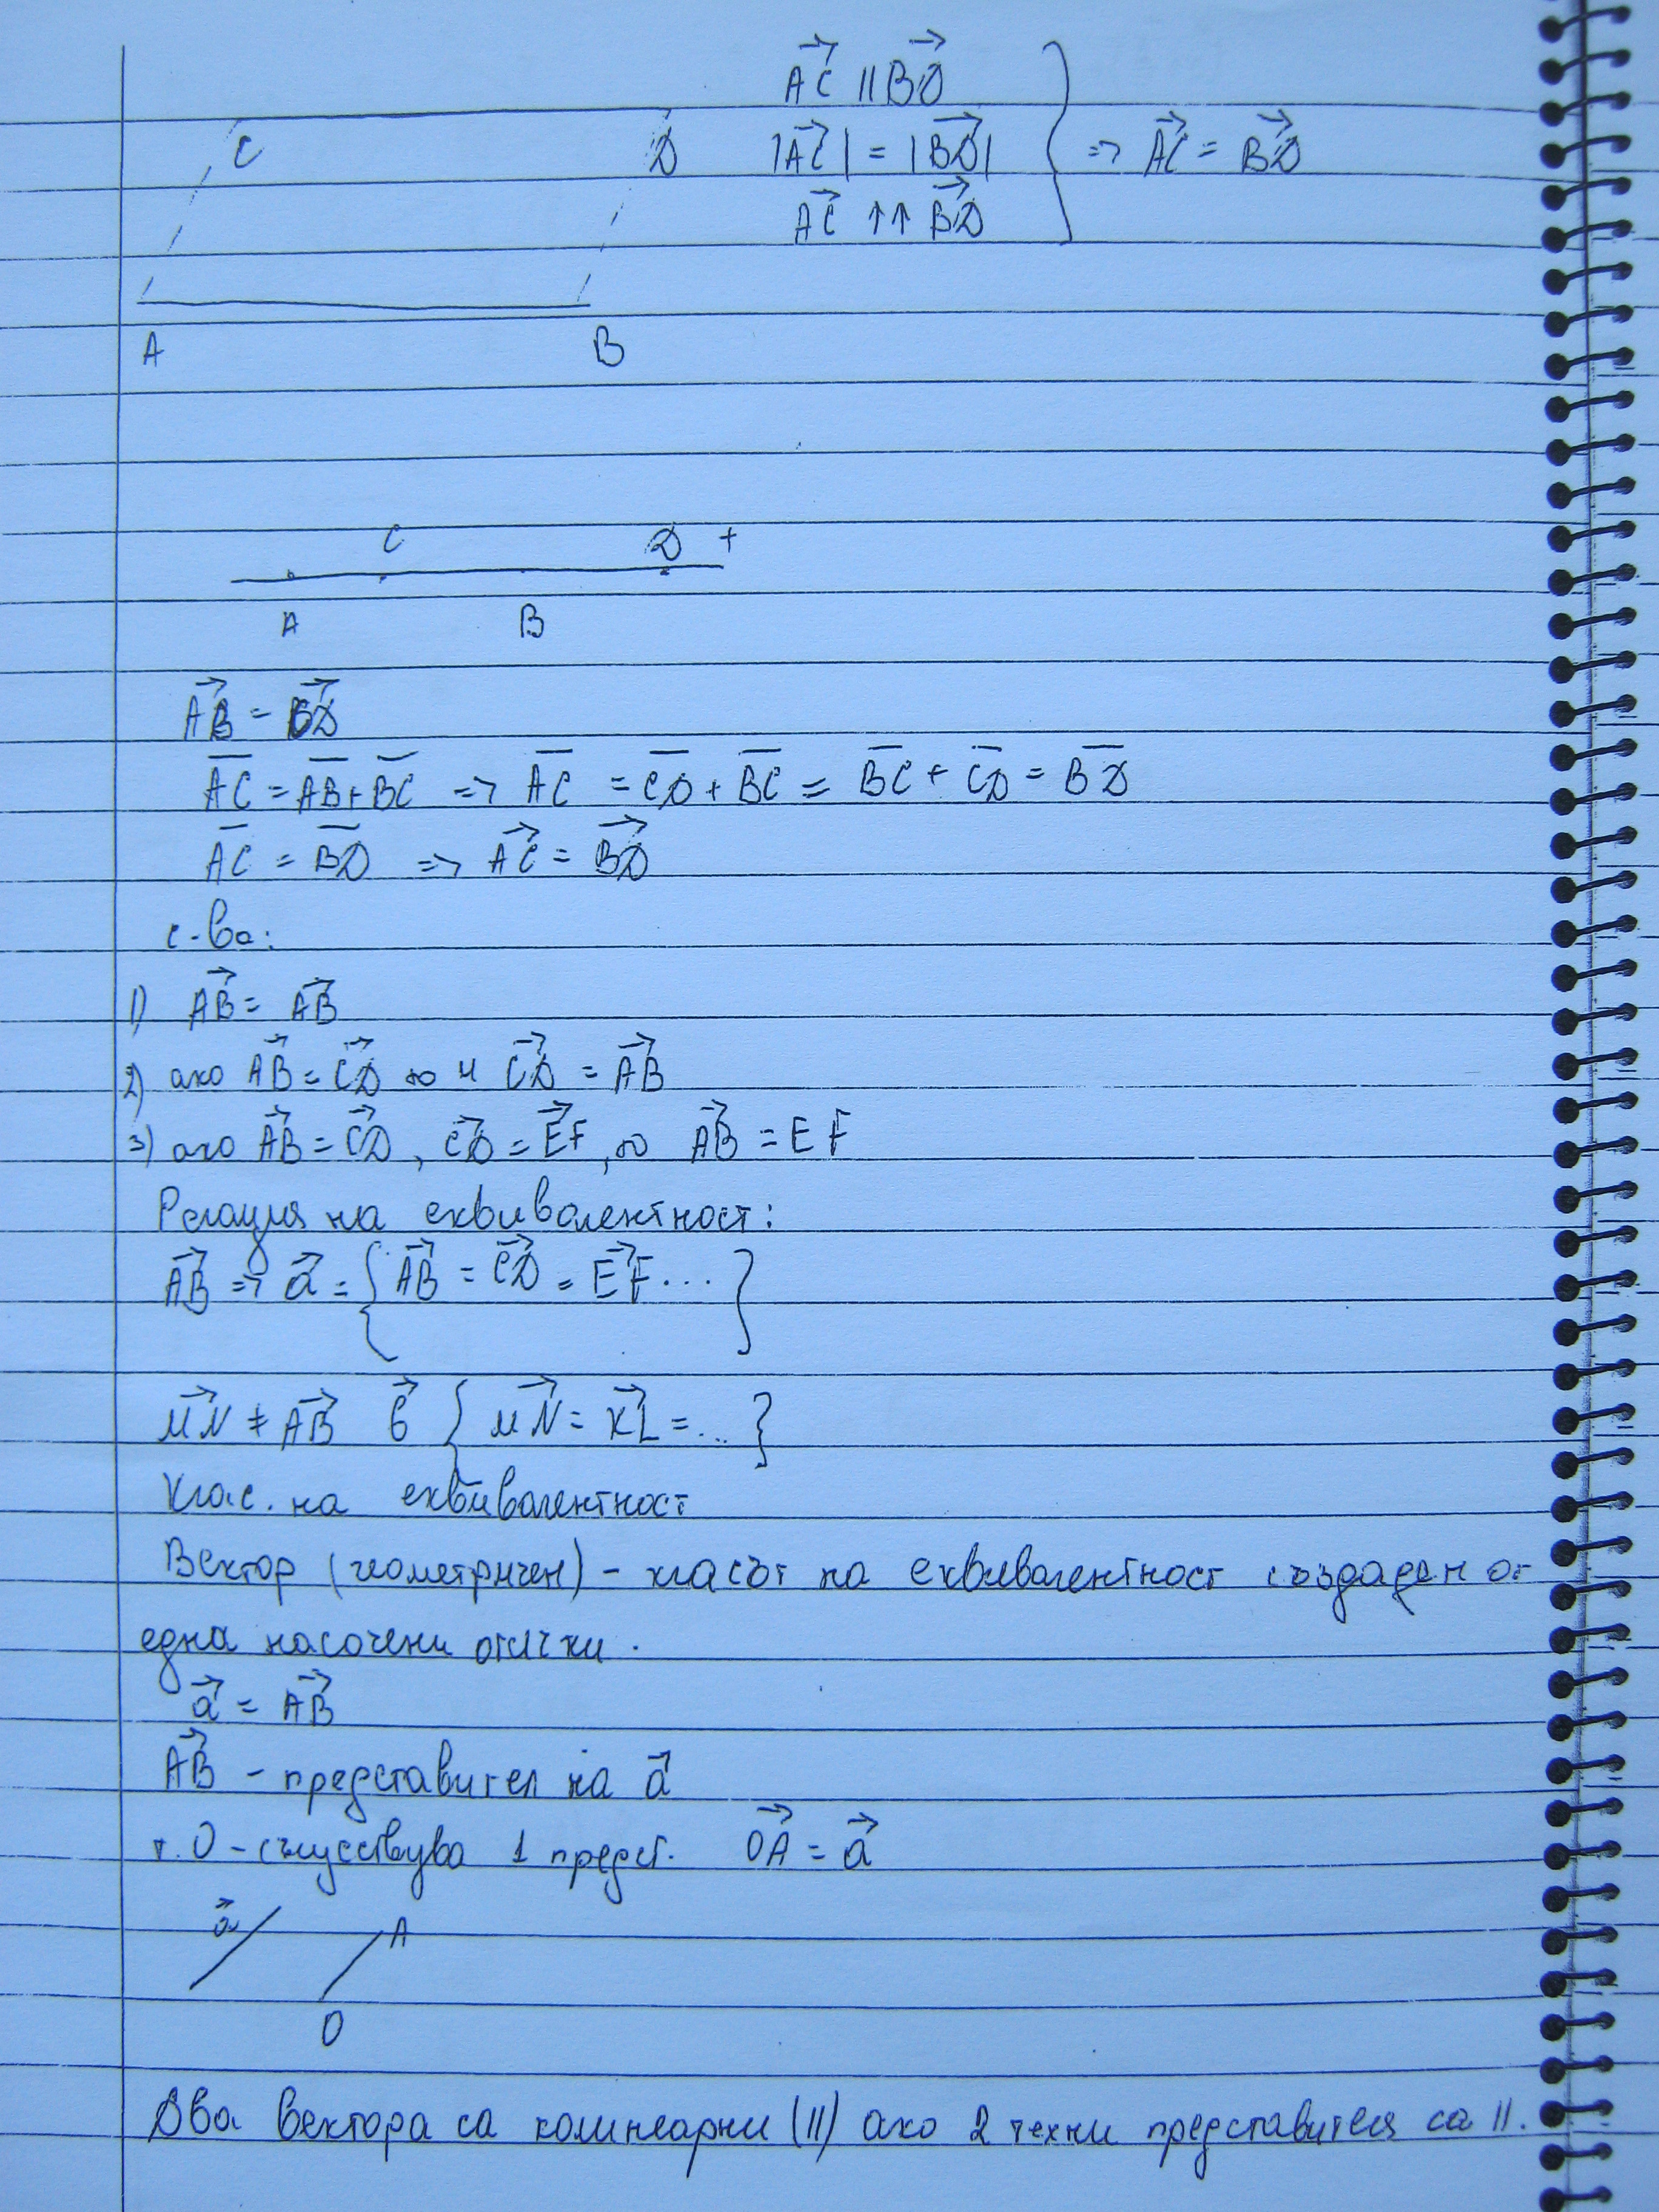 C D
A B
AC⃗ || BD⃗
|AC⃗| = |BD⃗| } => AC⃗ = BD⃗
AC⃗ ↑↑ BD⃗
C D +
A B
AB⃗ = CD⃗
A̅C̅ = A̅B̅ + B̅C̅ => A̅C̅ = C̅D̅ + B̅C̅ = B̅C̅ + C̅D̅ = B̅D̅
A̅C̅ = B̅D̅ => AC⃗ = BD⃗
с-ва:
1) AB⃗ = AB⃗
2) ако AB⃗ = CD⃗ то и CD⃗ = AB⃗
3) ако AB⃗ = CD⃗, CD⃗ = EF⃗, то AB⃗ = EF
Релация на еквивалентност:
AB⃗ => a⃗ = { AB⃗ = CD⃗ = EF⃗ ... }
MN⃗ ≠ AB⃗ b⃗ { MN⃗ = KL⃗ = ... }
Клас. на еквивалентност
Вектор (геометричен) - класът на еквивалентност създаден от
една насочени отсечки.
a⃗ = AB⃗
AB⃗ - представител на a⃗
т. O - съществува 1 предст. OA⃗ = a⃗
a⃗ A
O
Два вектора са колинеарни (||) ако 2 техни представителя са ||.